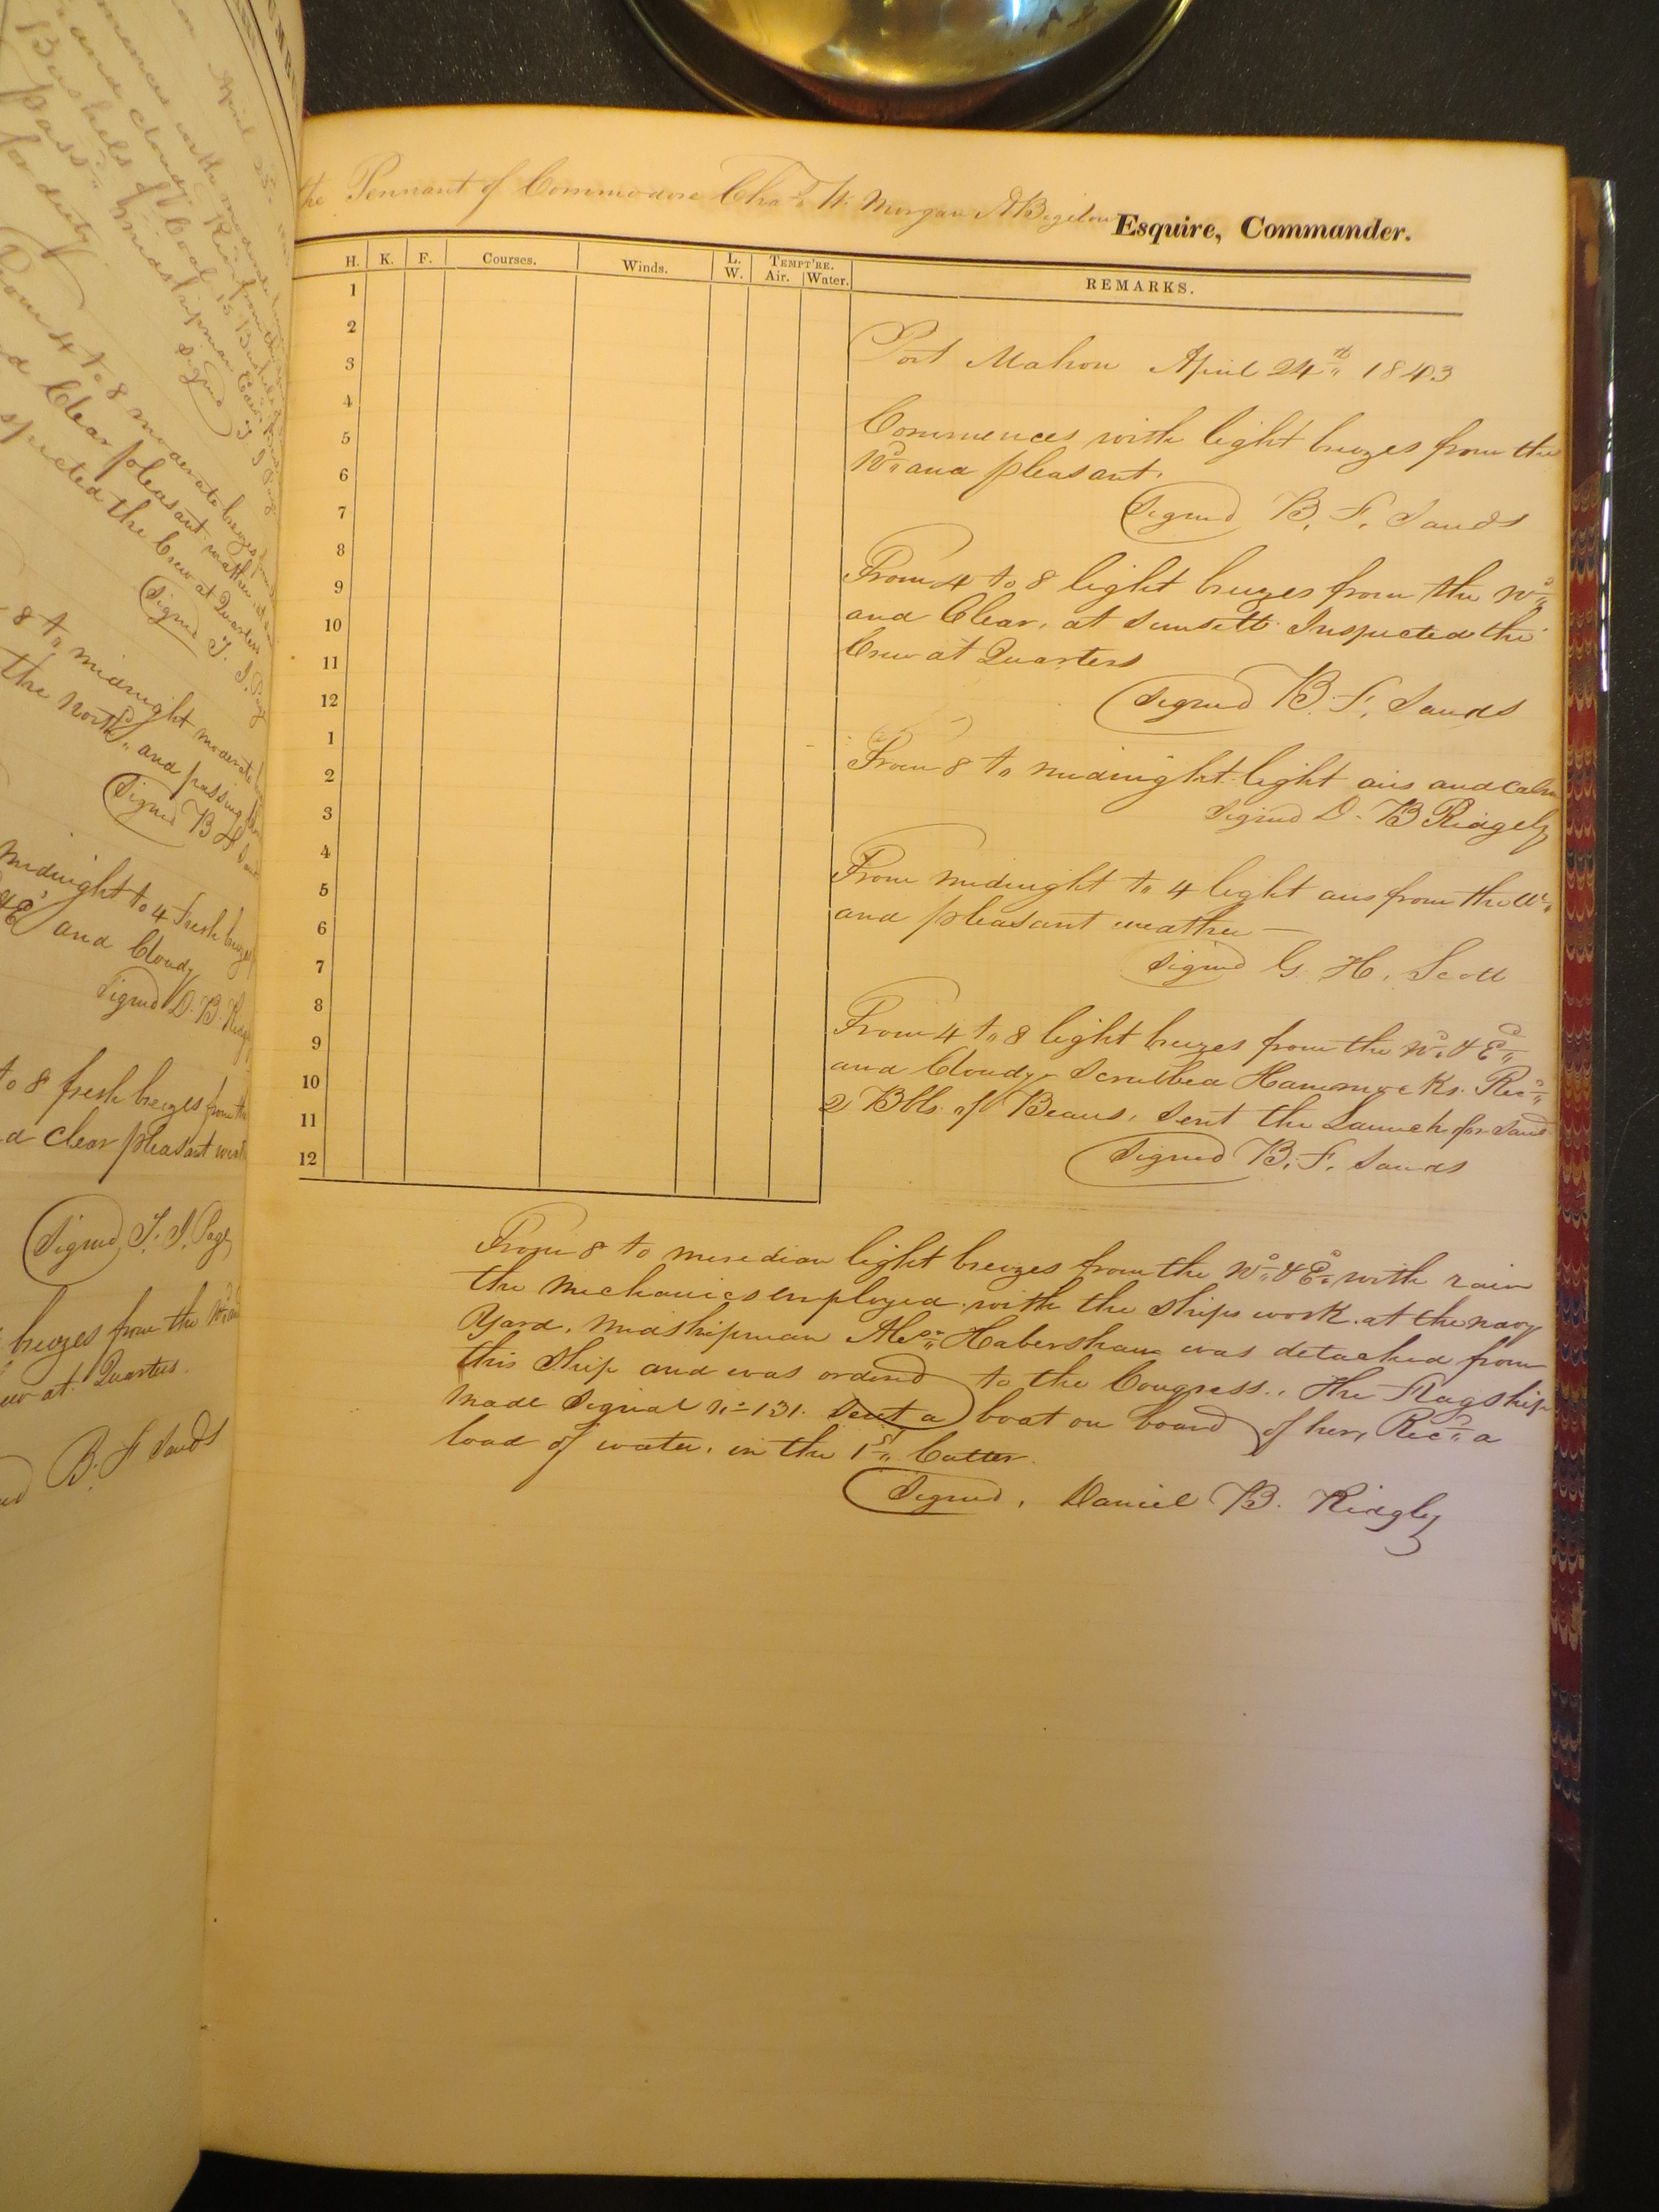 the Pennant of Commodore Chas. W. Morgan A Bigelow Esquire, Commander.
H. K. F. Courses. Winds. L. W. TEMPT'RE. Air. Water. REMARKS.
1
2
3
4
5
6
7
8
9
10
11
12
1
2
3
4
5
6
7
8
9
10
11
12
Port Mahon April 24th 1843
Commences with light breezes from the
Wd. and pleasant.
Signed B. F. Sands
From 4 to 8 light breezes from the Wd.
and Clear, at Sunsett Inspected the
Crew at Quarters
Signed B. F. Sands
From 8 to midnight light airs and calm
Signed D. B Ridgely
From midnight to 4 light airs from the Wd.
and pleasant weather —
Signed G. H. Scott
From 4 to 8 light breezes from the Nd. & Ed.
and Cloudy. Scrubbed Hammocks. Recd.
2 Bbls. of Beans. Sent the Launch for Sand
Signed B. F. Sands
From 8 to meredian light breezes from the Nd. & Ed. with rain
the mechanics employed with the Ships work at the navy
Yard. Midshipman Alexr. Habersham was detached from
this Ship and was ordered to the Congress. The Flagship
made Signal No 131. Sent a boat on board of her, Recd. a
load of water, in the 1st Cutter.
Signed, Daniel B. Ridgly
From 4 to 8 moderate breezes
Clear pleasant weather
the Crew at Quarters
Signed T. J. Page
8 to midnight moderate
the North and passing
Signed B F
midnight to 4 Fresh breezes
and Cloudy
Signed D. B.
to 8 fresh breezes from the
clear pleasant
Signed T. J. Page
breezes from the
at Quarters.
B. F Sands